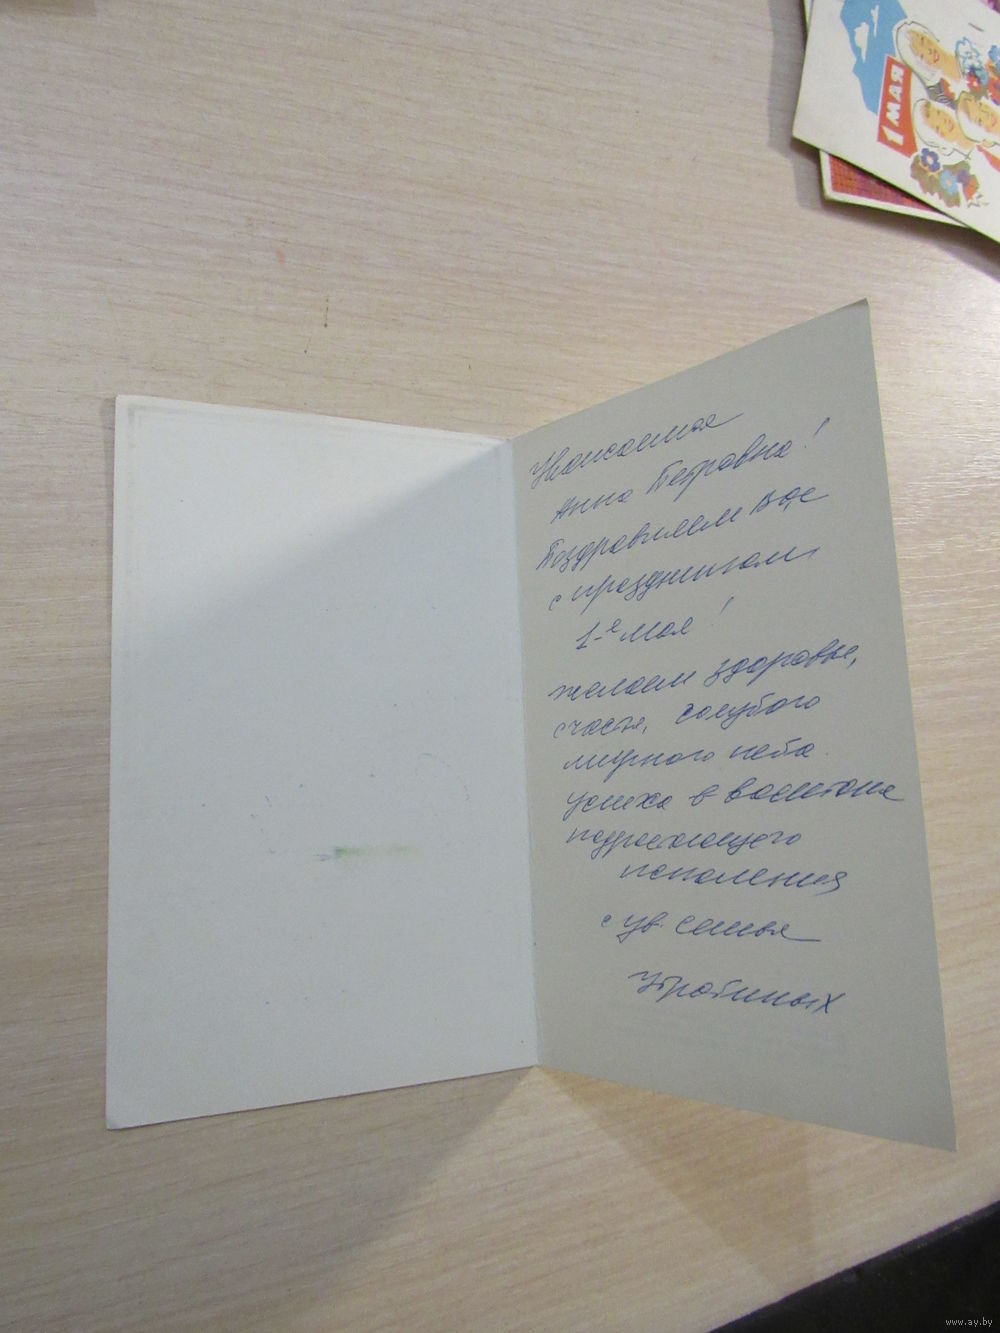 1 МАЯ
Уважаемая
Анна Петровна!
Поздравляем Вас
с праздником
1-е мая!
желаем здоровье,
счастья, голубого
мирного неба.
успеха в
подростающего
поколения
с ув. семья
Утробиных
www.ay.by